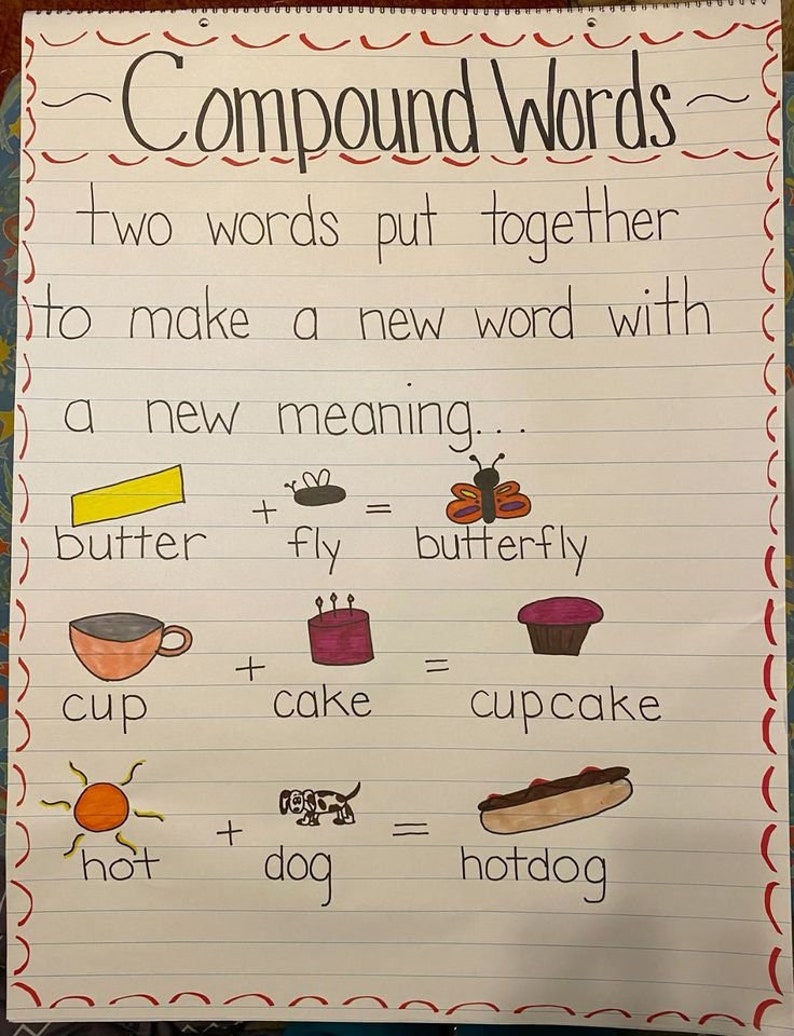 Compound Words
two words put together
to make a new word with
a new meaning...
+ =
butter fly butterfly
+ =
cup cake cupcake
+ =
hot dog hotdog